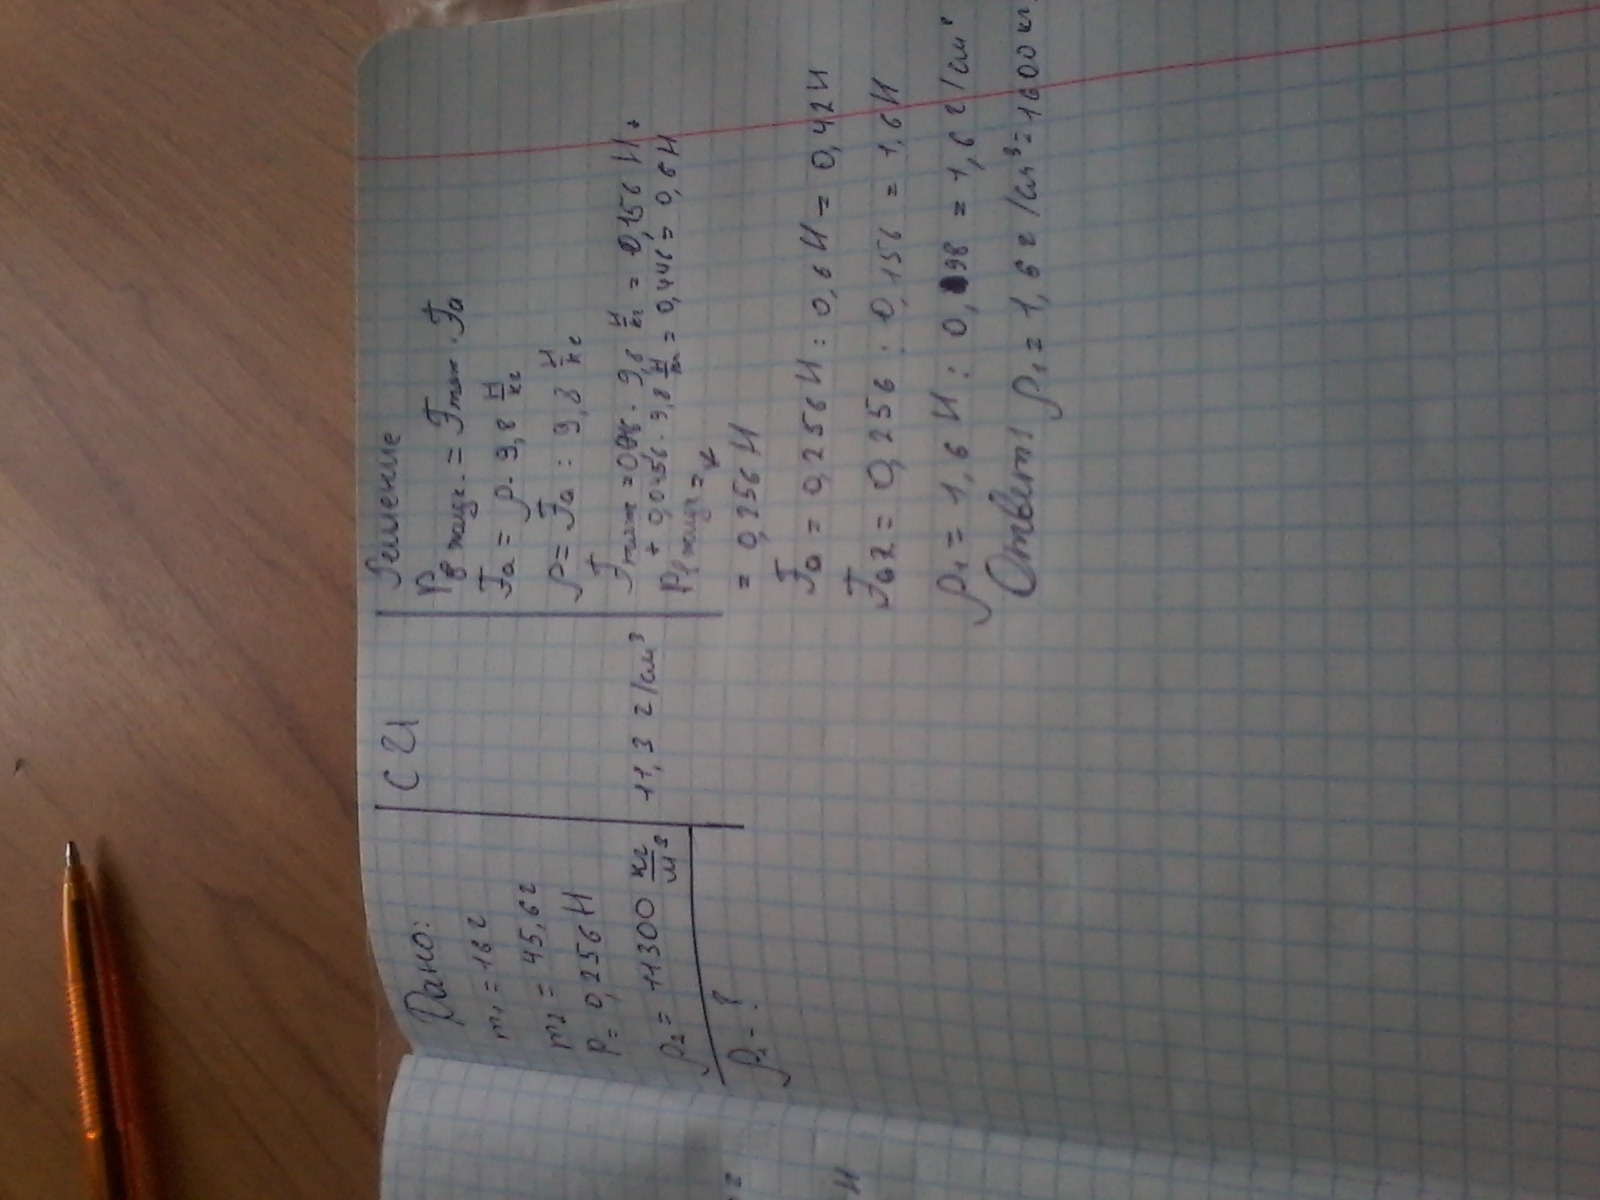 Дано:
m₁ = 16 г
m₂ = 45,6 г
P = 0,256 Н
ρ₂ = 11300 кг/м³
ρ₁ - ?
СИ
11,3 г/см³
Решение
P в жидк. = Fтяж · Fa
Fa = ρ · 9,8 Н/кг
ρ = Fa : 9,8 Н/кг
9,8 Н/кг = 0,156 Н +
+ 0,0456 · 9,8 Н/кг = 0,446 = 0,6 Н
P₁ жидк =
= 0,256 Н
Fa = 0,256 Н : 0,6 Н = 0,42 Н
Fa2 = 0,256 : 0,156 = 1,6 Н
ρ₁ = 1,6 Н : 0,98 = 1,6 г/см³
Ответ: ρ₁ = 1,6 г/см³ = 1600 кг
г
Н